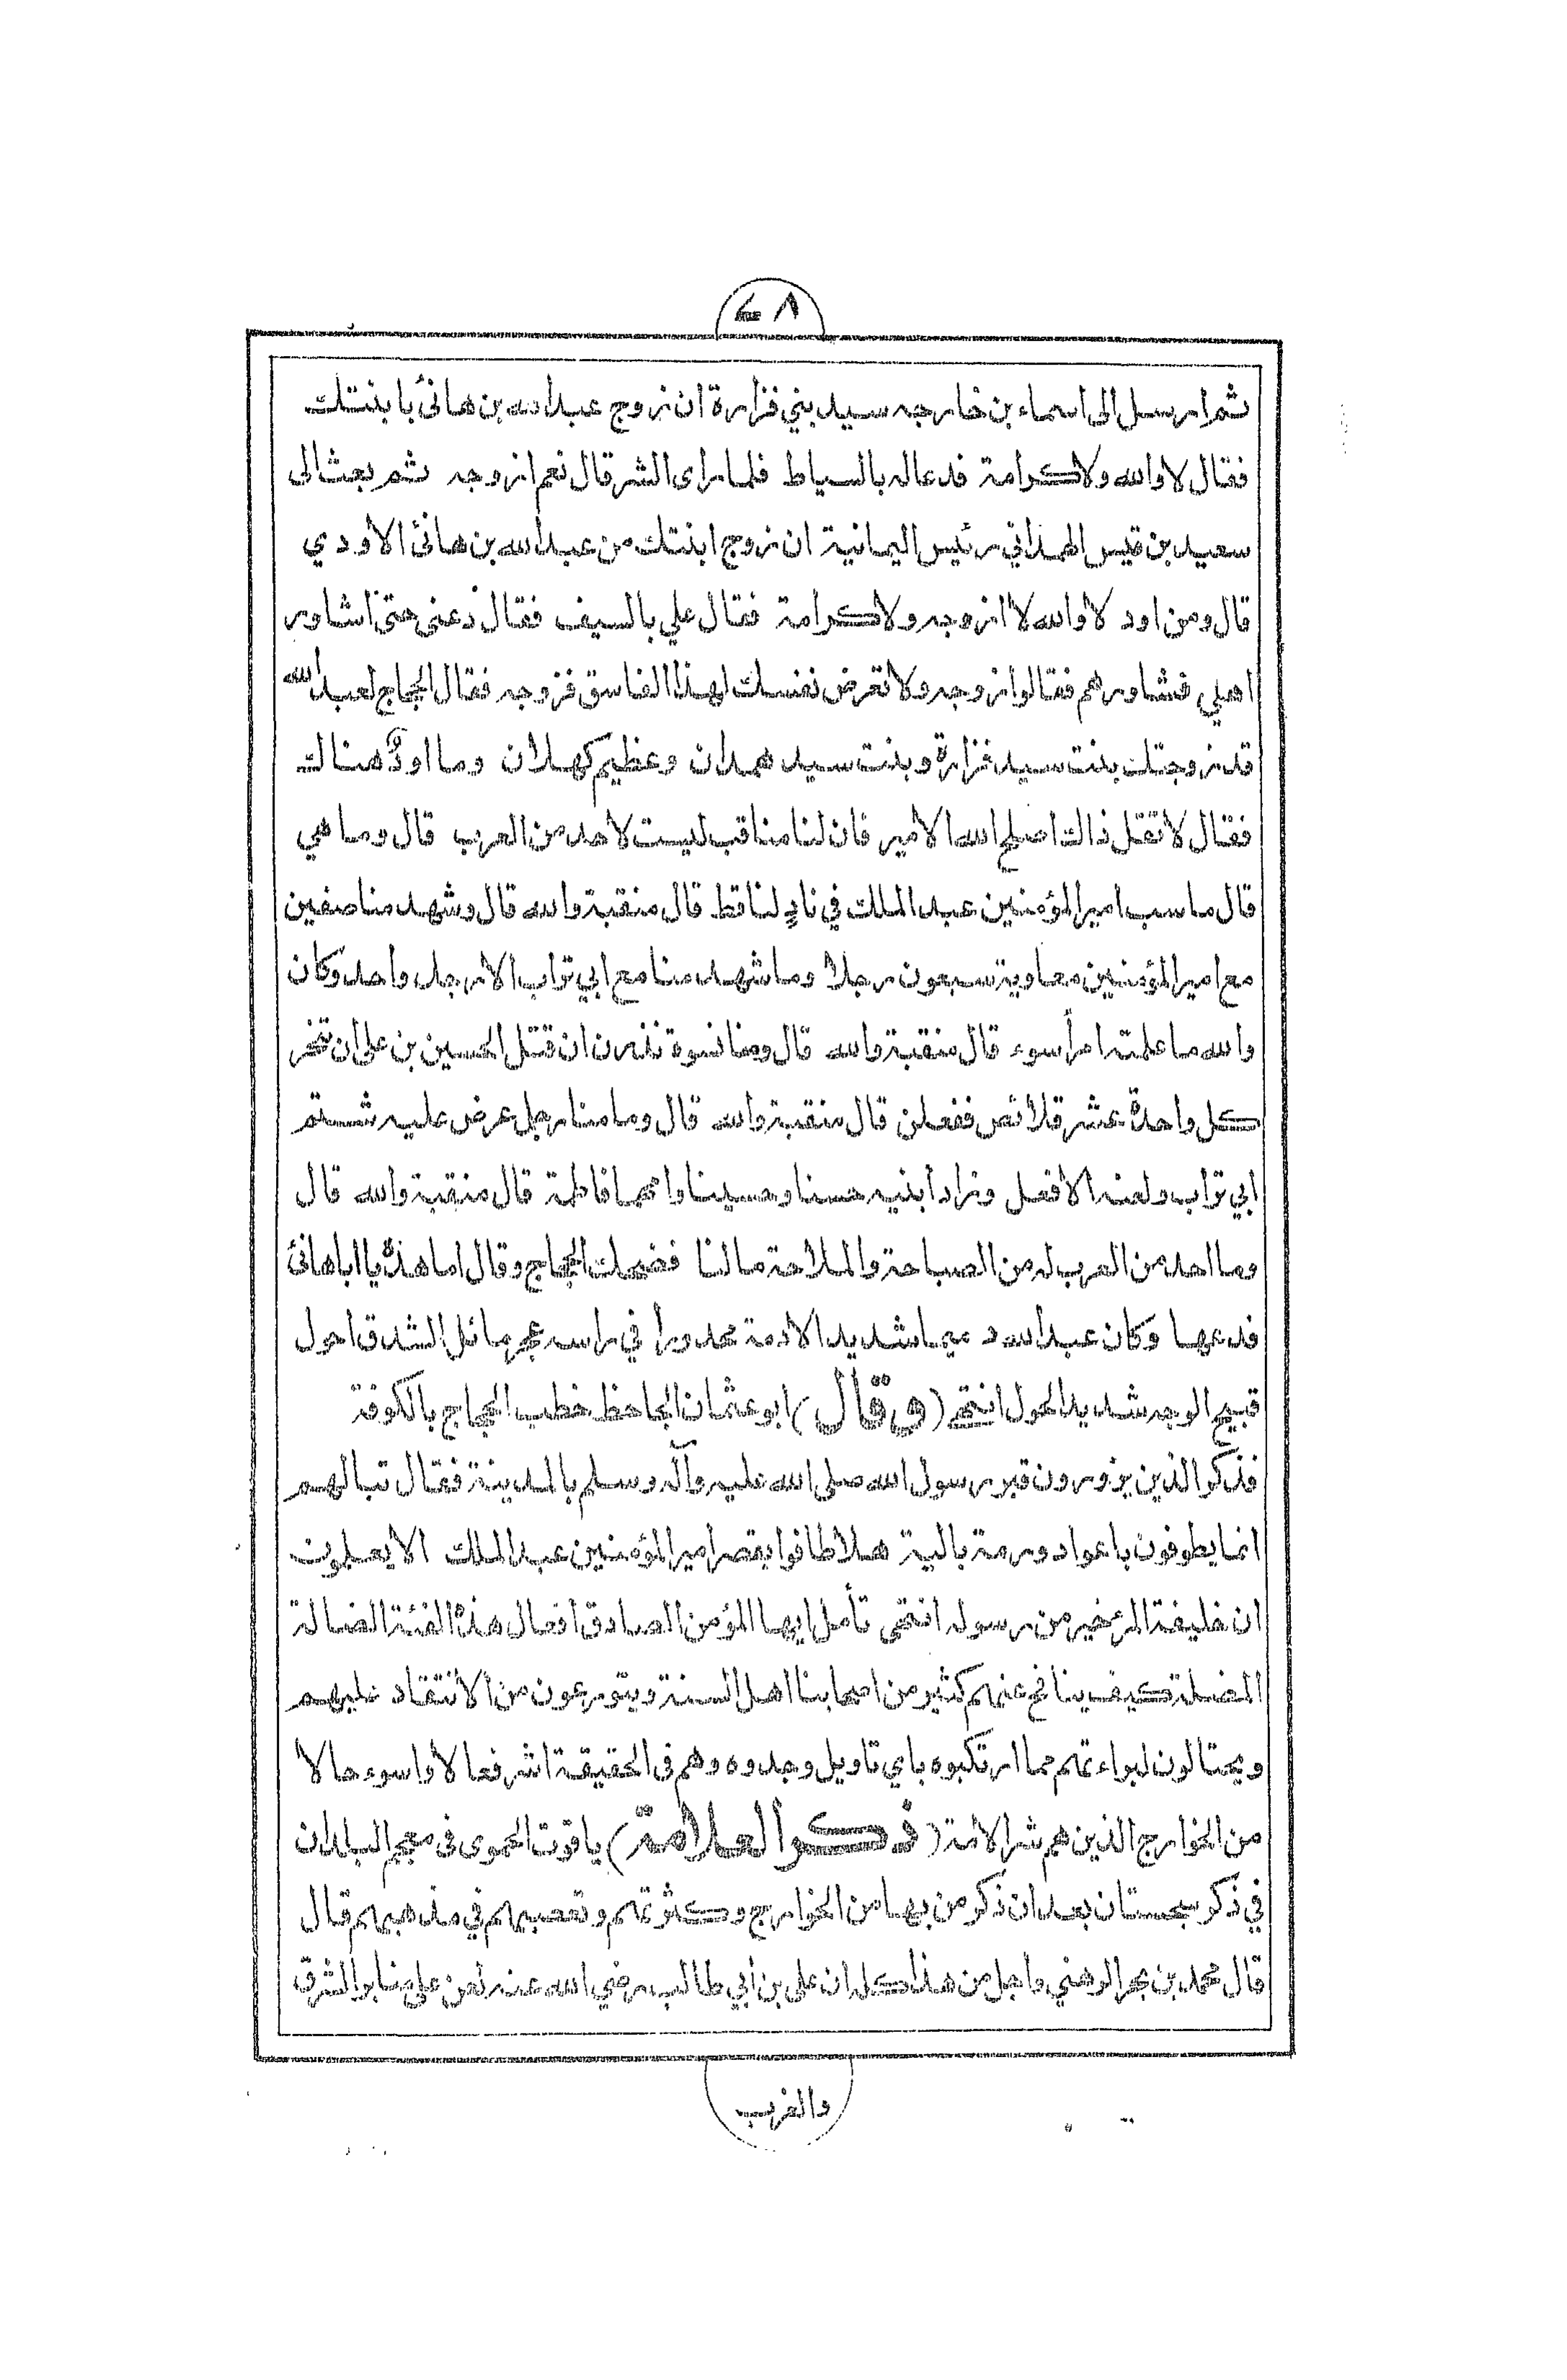 ٨٤
ثم ارسل الى اسماء بن خارجه سيد بني فزارة ان زوج عبد الله بن هانئ بابنتك
فقال لا والله ولا كرامة فدعا له بالسياط فلما راى الشر قال نعم ازوجه ثم بعث الى
سعيد بن قيس الهمداني رئيس اليمانية ان زوج ابنتك من عبد الله بن هانئ الاودي
قال ومن اود لا والله لا ازوجه ولا كرامة فقال علي بالسيف فقال دعني حتى اشاور
اهلي فشاورهم فقالوا زوجه ولا تعرض نفسك لهذا الفاسق فزوجه فقال الحجاج لعبد الله
قد زوجتك بنت سيد فزارة وبنت سيد همدان وعظيم كهلان وما اودٌ هناك
فقال لا تقل ذاك اصلح الله الامير فان لنا مناقب ليست لاحد من العرب قال وما هي
قال ما سب امير المؤمنين عبد الملك في نادٍ لنا قط قال منقبة والله قال وشهد منا صفين
مع امير المؤمنين معاوية سبعون رجلا وما شهد منا مع ابي تراب الا رجل واحد وكان
والله ما علمته امرأ سوء قال منقبة والله قال ومنا نسوة نذرن ان قتل الحسين بن علي ان تنحر
كل واحدة عشر قلائص ففعلن قال منقبة والله قال وما منا رجل عرض عليه شتم
ابي تراب ولعنه الا فعل وزاد ابنيه حسنا وحسينا وامهما فاطمة قال منقبة والله قال
وما احد من العرب له من الصباحة والملاحة ما لنا فضحك الحجاج وقال اما هذه يا ابا هانئ
فدعها وكان عبد الله دميما شديد الادمة مجدورا في راسه عجر مائل الشدق احول
قبيح الوجه شديد الحول انتهى (وقال) ابو عثمان الجاحظ خطب الحجاج بالكوفة
فذكر الذين يزورون قبر رسول الله صلى الله عليه وآله وسلم بالمدينة فقال تبا لهم
انما يطوفون باعواد ورمة بالية هلا طافوا بقصر امير المؤمنين عبد الملك الا يعلمون
ان خليفة المرء خير من رسوله انتهى تأمل ايها المؤمن الصادق افعال هذه الفئة الضالة
المضلة كيف ينافح عنهم كثير من اصحابنا اهل السنة ويتورعون من الانتقاد عليهم
ويحتالون لبراءتهم مما ارتكبوه باي تاويل وجدوه وهم في الحقيقة اشر فعالا واسوء حالا
من الخوارج الذين هم شر الامة (ذكر العلامة) ياقوت الحموى فى معجم البلدان
في ذكر سجستان بعد ان ذكر من بها من الخوارج وكثرتهم وتعصبهم في مذهبهم قال
قال محمد بن بحر الرهني واجل من هذا كله ان علي بن ابي طالب رضي الله عنه لعن على منابر الشرق
والغرب